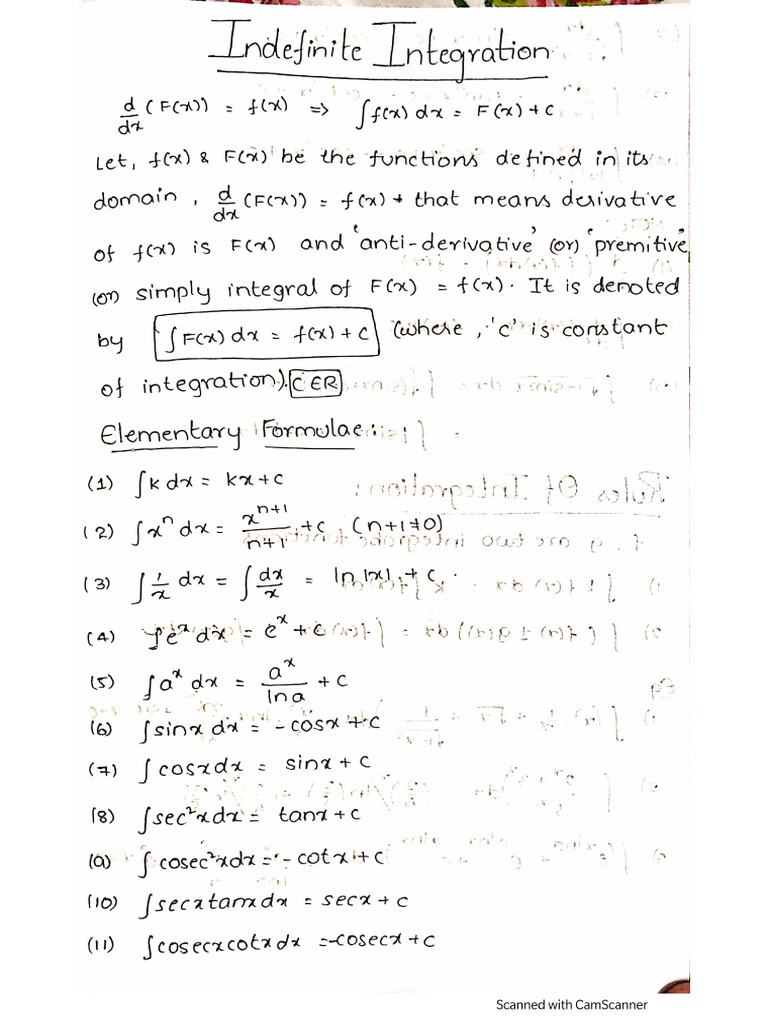 Indefinite Integration
d/dx (F(x)) = f(x) => ∫f(x) dx = F(x) + c
Let, f(x) & F(x) be the functions defined in its
domain, d/dx (F(x)) = f(x) + that means derivative
of f(x) is F(x) and 'anti-derivative' (or) 'premitive'
(or) simply integral of F(x) = f(x). It is denoted
by ∫F(x) dx = f(x) + c (where, 'c' is constant
of integration). C∈R
Elementary Formulae:
(1) ∫k dx = kx + c
(2) ∫xⁿ dx = xⁿ⁺¹/n+1 + c, (n+1≠0)
(3) ∫1/x dx = ∫dx/x = ln|x| + c.
(4) ∫eˣ dx = eˣ + c
(5) ∫aˣ dx = aˣ/ln a + c
(6) ∫sinx dx = -cosx + c
(7) ∫cosx dx = sinx + c
(8) ∫sec²x dx = tanx + c
(9) ∫cosec²x dx = -cotx + c
(10) ∫secx tanx dx = secx + c
(11) ∫cosecx cotx dx = -cosecx + c
Scanned with CamScanner